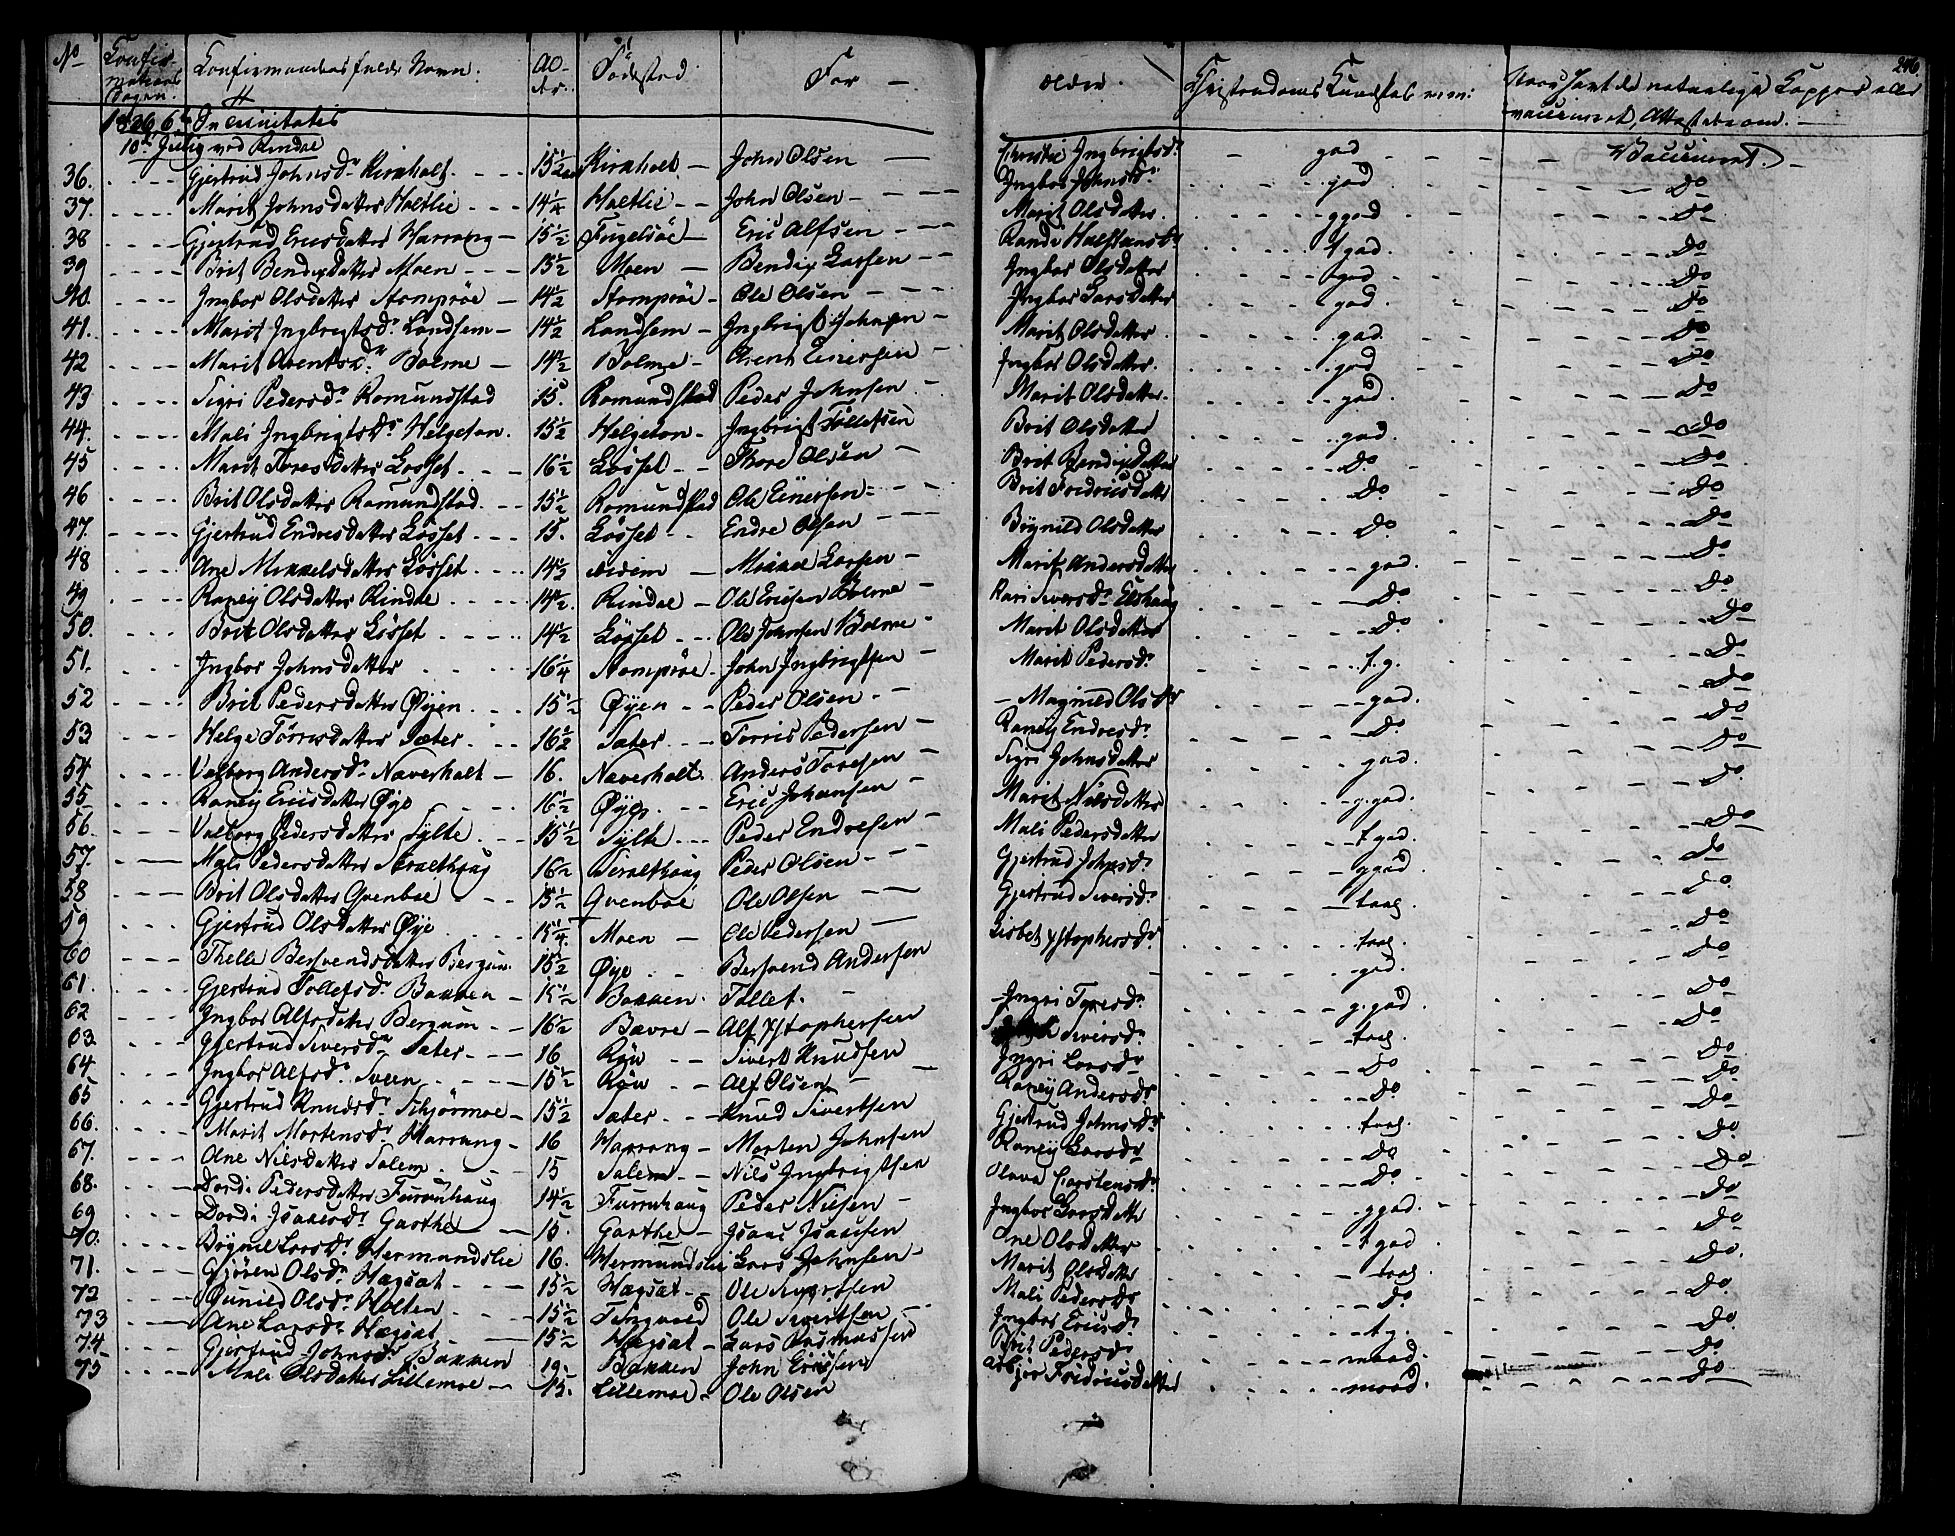 No Confirmations Dagen. Confirmandens fulde Navn: Al- Fødested For - ældre. Christendoms Kundskab m.m: 276.
1826 6te Dn Trinitatis
16de Julij ved Rindal
36. Gjertrud Johnsdr Kirkholt. 15½ Kirkholt John Olsen Christi Ingbrigtsdr god Vaccineret
37. Marit Johnsdatter Holtlie 14¼ Holtlie John Olsen Ingbor Johnsdr god Do
38 Gjertrud Ericsdatter Harrang 15½ Fugelsøe Eric Alfsen Marit Olsdatter. ggod Do
39 Brit Bendixdatter Moen 15½ Moen Bendix Larsen Randi Halstensdr tgod. Do
40. Ingbor Olsdatter Stomprøe 14½ Stomprøe Ole Olsen Ingbor Olsdatter tgod Do
41. Marit Ingbrigtsdr Landsem 14½ Landsem Ingbrigt Johnsen Ingbor Larsdatter god Do
42 Marit Arentsdr Bolme 14½ Bolme Arent Einersen Marit Olsdatter god. Do
43 Sigri Pedersdr Romundstad 15. Romundstad Peder Johnsen Ingbor Olsdatter. god Do
44. Mali Ingbrigtsdr Helgeton. 15½ Helgeton Ingbrigt Tollefsen Marit Olsdatter. god. Do
45 Marit Toresdatter Løsset. 16½ Løsset Thore Olsen Brit Olsdatter god. Do
46 Brit Olsdatter Romundstad. 15½ Romundstad Ole Einersen Brit Bendixdatter Do Do
47. Gjertrud Endresdatter Løsset 15. Løsset Endre Olsen Brit Fredricsdatter Do Do
48 Ane Mikkelsdatter Løsset. 14½ ibidem Mikkel Larsen Bøgnild Olsdatter Do. Do
49 Raney Olsdatter Rindal 14½. Rindal Ole Ericsen Bolme Marit Andersdatter god. Do
50. Brit Olsdatter Løsset 14½ Løsset Ole Johnsen Bolme Kari Siversdr Elshaug Do Do
51. Ingbor Johnsdatter 16¼ Stomprøe John Ingbrigtsen Marit Olsdatter Do. Do
52 Brit Pedersdatter Øyen 15½ Øyen Peder Olsen Marit Pedersdr t.g. Do
53 Helge Torrisdatter Sæter. 16½ Sæter. Torris Pedersen Magnild Olsdr god. Do
54. Valborg Andersdr Naverholt 16. Naverholt Anders Toresen Raney Endresdr Do. Do
55. Raney Ericsdatter Øye 16½ Øye. Eric Johansen Sigri Johnsdatter god. Do
56. Valborg Pedersdatter Sylte 15½ Sylte Peder Endresen Marit Nilsdatter g.god. Do
57. Mali Pedersdatter Teralthaug 16½ Teralthaug Peder Olsen Mali Pedersdatter tgod. Do
58 Brit Olsdatter Qvenboe 15½ Qvenboe Ole Olsen Gjertrud Johnsdr ggod. Do
59 Gjertrud Olsdatter Øye 15¼. Moen Ole Pedersen Gjertrud Siversdr taal. Do
60 Thelle Bersvendsdatter Bergum. 15½ Øye Bersvend Andersen Lisbet Xstophersdr taal. Do
61. Gjertrud Tollefsdr Bakken 15½ Bakken. Tollef. god. Do
62 Ingbor Alfsdatter Bergum 16½ Bævre Alf Xstophersen Ingri Toresdr g.god Do
63. Gjertrud Siversdr Sæter 16 Røu Sivert Knudsen Siversdr. taal. Do
64. Ingbor Alfsdr. Sveen 15½ Røu Alf Olsen Ingri Larsdr Do Do
65 Gjertrud Knudsdr Schjørmoe 15½ Sæter. Knud Sivertsen Raney Andersdr Do Do
66. Marit Mortensdr Harrang 16 Harrang Morten Johnsen Gjertrud Johnsdr taal. Do
67. Ane Nilsdatter Solem 15 Solem Nils Ingbrigtsen Raney Larsdr Do Do
68. Dordi Pedersdatter Furruhaug 14½ Furruhaug Peder Nilsen Olava Carstensdr Do. Do
69 Dordi Isaacsdr Garthe 15. Garthe Isaac Isaacsen Ingbor Larsdatter ggod. Do
70. Bøgnil Larsdr Hermundslie 16. Hermundslie Lars Johnsen Ane Olsdatter tgod Do
71. Gjøren Olsdr Hagsæt 15½ Hagsæt Marit Olsdatter taal Do.
72 Gunild Olsdr Holten 15½ Tingvold Ole Sivertsen Mali Pedersdr Do Do.
73 Ane Larsdr Hagsæt 15½ Hagsæt Lars Rasmussen Ingbor Ericsdr t.g. Do
74. Gjertrud Johnsdr Bakken 19. Bakken John Ericssen Brit Pedersdr maad. Do
75 Male Olsdatter Lillemoe 15. Lillemoe Ole Olsen Fredricsdatter maad. Do